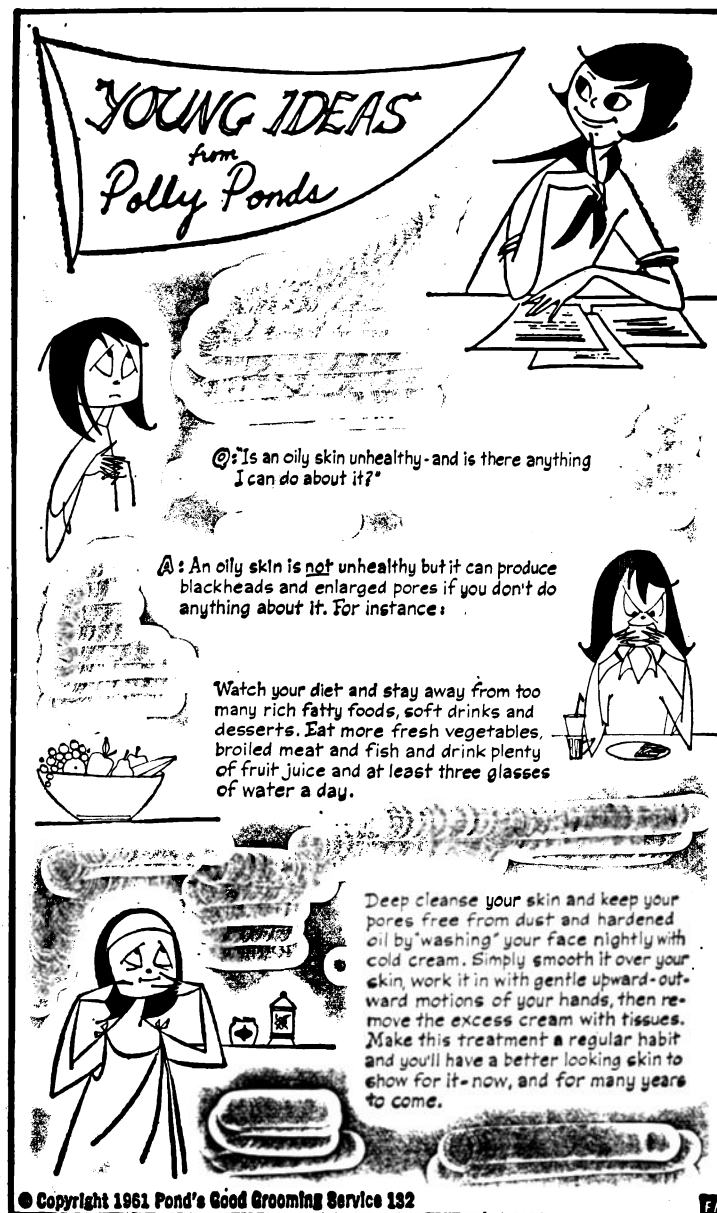 YOUNG IDEAS
from
Polly Ponds
Q: "Is an oily skin unhealthy - and is there anything
I can do about it?"
A: An oily skin is not unhealthy but it can produce
blackheads and enlarged pores if you don't do
anything about it. For instance:
Watch your diet and stay away from too
many rich fatty foods, soft drinks and
desserts. Eat more fresh vegetables,
broiled meat and fish and drink plenty
of fruit juice and at least three glasses
of water a day.
Deep cleanse your skin and keep your
pores free from dust and hardened
oil by "washing" your face nightly with
cold cream. Simply smooth it over your
skin, work it in with gentle upward-out-
ward motions of your hands, then re-
move the excess cream with tissues.
Make this treatment a regular habit
and you'll have a better looking skin to
show for it - now, and for many years
to come.
© Copyright 1961 Pond's Good Grooming Service 132